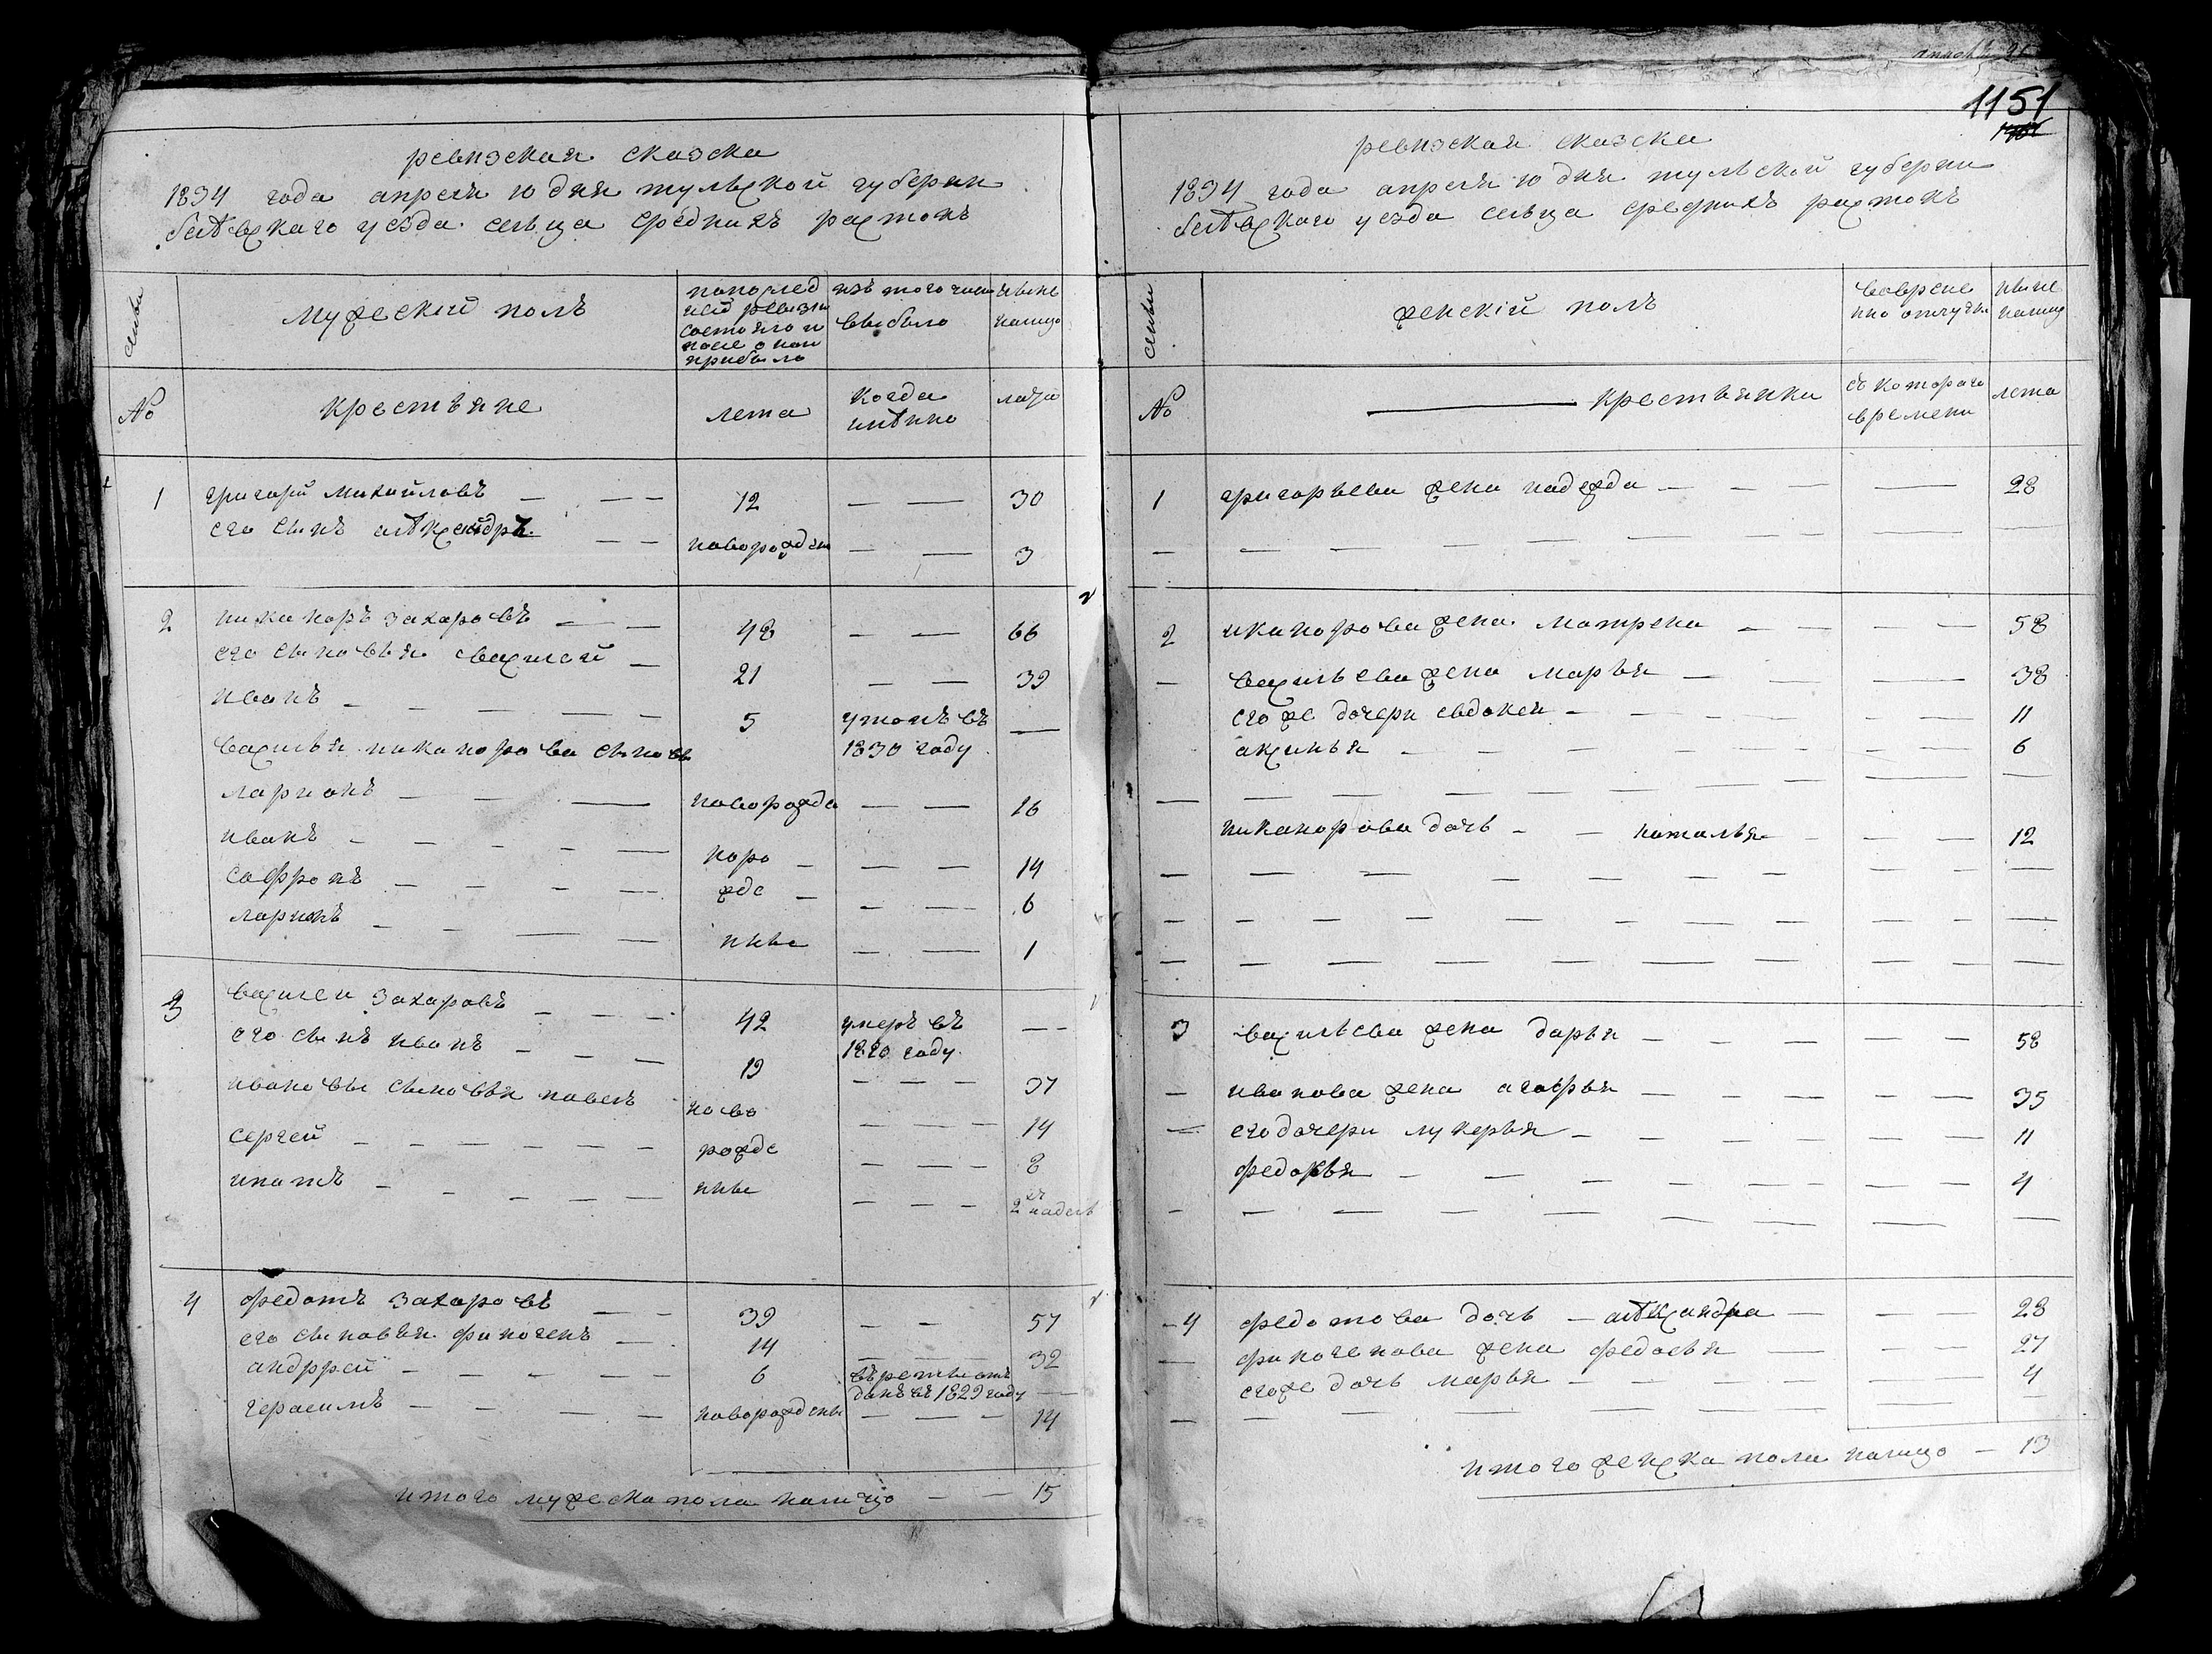 1151
ревизская сказска
1834 года апреля 10 дня тульской губерни
белевскаго уезда сельца средникъ растокъ
семьи
мужеской полъ
попослед
ней ревизи
состояло и
после оной
прибыло
изъ того числа
выбыло
ныне
налицо
№
крестьяне
лета
когда
имѣнно
лета
1 григорій михайловъ — — — 12 — — 30
его сынъ алѣксандръ — — новорожден — — 3
2 никаноръ захаровъ — — 48 — — 66
его сыновья василей — 21 — — 39
иванъ — — — — — 5 утонъ въ —
1830 году
василья никанорова сыновь
ларионъ — — — новорожде — — 16
иванъ — — — — — норо — — — 14
софронъ — — — — жде — — — 6
ларионъ — — — — нные — — 1
3 василеи захаровъ — — — 42 умеръ въ — —
1820 году
его сынъ иванъ — — — 19 — — — 37
ивановы сыновья павелъ ново — — — 14
сергей — — — — — — рожде — — — 8
игнатъ — — — — — нные — — — 2 надель
4 федотъ захаровъ — — 39 — — 57
его сыновья финогенъ — 14 — — — 32
андррей — — — — — — 6 въ ректы от
данъ въ 1829 году —
герасимъ — — — — — новорожденны — — — 14
итого мужеска пола налицо — — 15
ревизская сказска
1834 года апреля 10 дня тульской губерни
белевскаго уезда сельца средникъ растокъ
семьи
женскій полъ
вовреме
нно отлучки
ныне
налицо
№
крестьянки
съ котораго
времени
лета
1 григорьева жена надежда — — — — — 28
2 иканорова жена матрена — — — — 58
— васильева жена марья — — — — 38
его же дочери евдокея — — — — — — 11
аксинья — — — — — — — 6
никанорова дочь — — наталья — — — 12
3 васильева жена дарья — — — — — 58
— иванова жена агафья — — — — — 35
— его дочери лукерья — — — — — — 11
федосья — — — — — — — 4
— 4 федотова дочь — алѣксандра — — — 28
— финогенова жена федосья — — — 27
его же дочь марья — — — — — — 4
итого женска пола налицо — 13